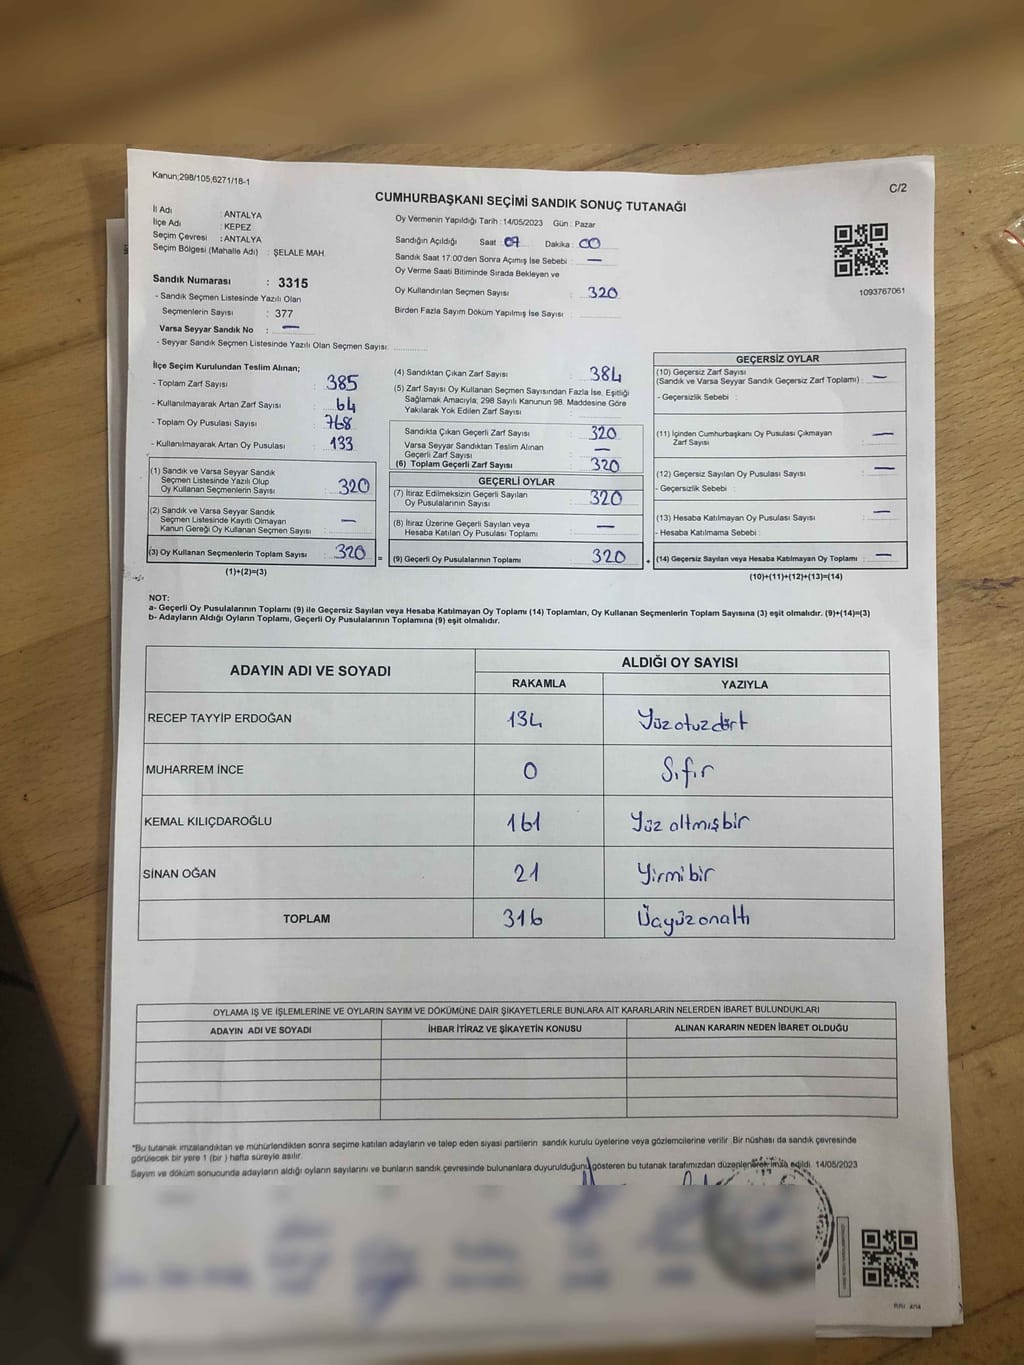 Kanun;298/105,6271/18-1
C/2
CUMHURBAŞKANI SEÇİMİ SANDIK SONUÇ TUTANAĞI
İl Adı : ANTALYA
İlçe Adı : KEPEZ
Seçim Çevresi : ANTALYA
Seçim Bölgesi (Mahalle Adı) : ŞELALE MAH.
Sandık Numarası : 3315
- Sandık Seçmen Listesinde Yazılı Olan
Seçmenlerin Sayısı : 377
Varsa Seyyar Sandık No : —
- Seyyar Sandık Seçmen Listesinde Yazılı Olan Seçmen Sayısı:
Oy Vermenin Yapıldığı Tarih : 14/05/2023 Gün : Pazar
Sandığın Açıldığı Saat : 07 Dakika : 00
Sandık Saat 17:00'den Sonra Açımış İse Sebebi : —
Oy Verme Saati Bitiminde Sırada Bekleyen ve
Oy Kullandırılan Seçmen Sayısı : 320
Birden Fazla Sayım Döküm Yapılmış İse Sayısı :
1093767061
İlçe Seçim Kurulundan Teslim Alınan;
- Toplam Zarf Sayısı : 385
- Kullanılmayarak Artan Zarf Sayısı : 64
- Toplam Oy Pusulası Sayısı : 768
- Kullanılmayarak Artan Oy Pusulası : 133
(1) Sandık ve Varsa Seyyar Sandık
Seçmen Listesinde Yazılı Olup
Oy Kullanan Seçmenlerin Sayısı : 320
(2) Sandık ve Varsa Seyyar Sandık
Seçmen Listesinde Kayıtlı Olmayan
Kanun Gereği Oy Kullanan Seçmen Sayısı : —
(3) Oy Kullanan Seçmenlerin Toplam Sayısı : 320 =
(1)+(2)=(3)
(4) Sandıktan Çıkan Zarf Sayısı : 384
(5) Zarf Sayısı Oy Kullanan Seçmen Sayısından Fazla İse, Eşitliği
Sağlamak Amacıyla; 298 Sayılı Kanunun 98. Maddesine Göre
Yakılarak Yok Edilen Zarf Sayısı :
Sandıkta Çıkan Geçerli Zarf Sayısı : 320
Varsa Seyyar Sandıktan Teslim Alınan
Geçerli Zarf Sayısı : —
(6) Toplam Geçerli Zarf Sayısı : 320
GEÇERLİ OYLAR
(7) İtiraz Edilmeksizin Geçerli Sayılan
Oy Pusulalarının Sayısı : 320
(8) İtiraz Üzerine Geçerli Sayılan veya
Hesaba Katılan Oy Pusulası Toplamı : —
(9) Geçerli Oy Pusulalarının Toplamı : 320 +
GEÇERSİZ OYLAR
(10) Geçersiz Zarf Sayısı
(Sandık ve Varsa Seyyar Sandık Geçersiz Zarf Toplamı) : —
- Geçersizlik Sebebi :
(11) İçinden Cumhurbaşkanı Oy Pusulası Çıkmayan
Zarf Sayısı : —
(12) Geçersiz Sayılan Oy Pusulası Sayısı : —
- Geçersizlik Sebebi :
(13) Hesaba Katılmayan Oy Pusulası Sayısı : —
- Hesaba Katılmama Sebebi :
(14) Geçersiz Sayılan veya Hesaba Katılmayan Oy Toplamı : —
(10)+(11)+(12)+(13)=(14)
NOT:
a- Geçerli Oy Pusulalarının Toplamı (9) ile Geçersiz Sayılan veya Hesaba Katılmayan Oy Toplamı (14) Toplamları, Oy Kullanan Seçmenlerin Toplam Sayısına (3) eşit olmalıdır. (9)+(14)=(3)
b- Adayların Aldığı Oyların Toplamı, Geçerli Oy Pusulalarının Toplamına (9) eşit olmalıdır.
ADAYIN ADI VE SOYADI ALDIĞI OY SAYISI
RAKAMLA YAZIYLA
RECEP TAYYİP ERDOĞAN 134 Yüzotuzdört
MUHARREM İNCE 0 Sıfır
KEMAL KILIÇDAROĞLU 161 Yüz altmışbir
SİNAN OĞAN 21 Yirmi bir
TOPLAM 316 Üçyüz onaltı
OYLAMA İŞ VE İŞLEMLERİNE VE OYLARIN SAYIM VE DÖKÜMÜNE DAİR ŞİKAYETLERLE BUNLARA AİT KARARLARIN NELERDEN İBARET BULUNDUKLARI
ADAYIN ADI VE SOYADI İHBAR İTİRAZ VE ŞİKAYETİN KONUSU ALINAN KARARIN NEDEN İBARET OLDUĞU
*Bu tutanak imzalandıktan ve mühürlendikten sonra seçime katılan adayların ve talep eden siyasi partilerin sandık kurulu üyelerine veya gözlemcilerine verilir. Bir nüshası da sandık çevresinde
görülecek bir yere 1 (bir ) hafta süreyle asılır.
Sayım ve döküm sonucunda adayların aldığı oyların sayılarını ve bunların sandık çevresinde bulunanlara duyurulduğunu gösteren bu tutanak tarafımızdan düzenlenerek imza edildi. 14/05/2023